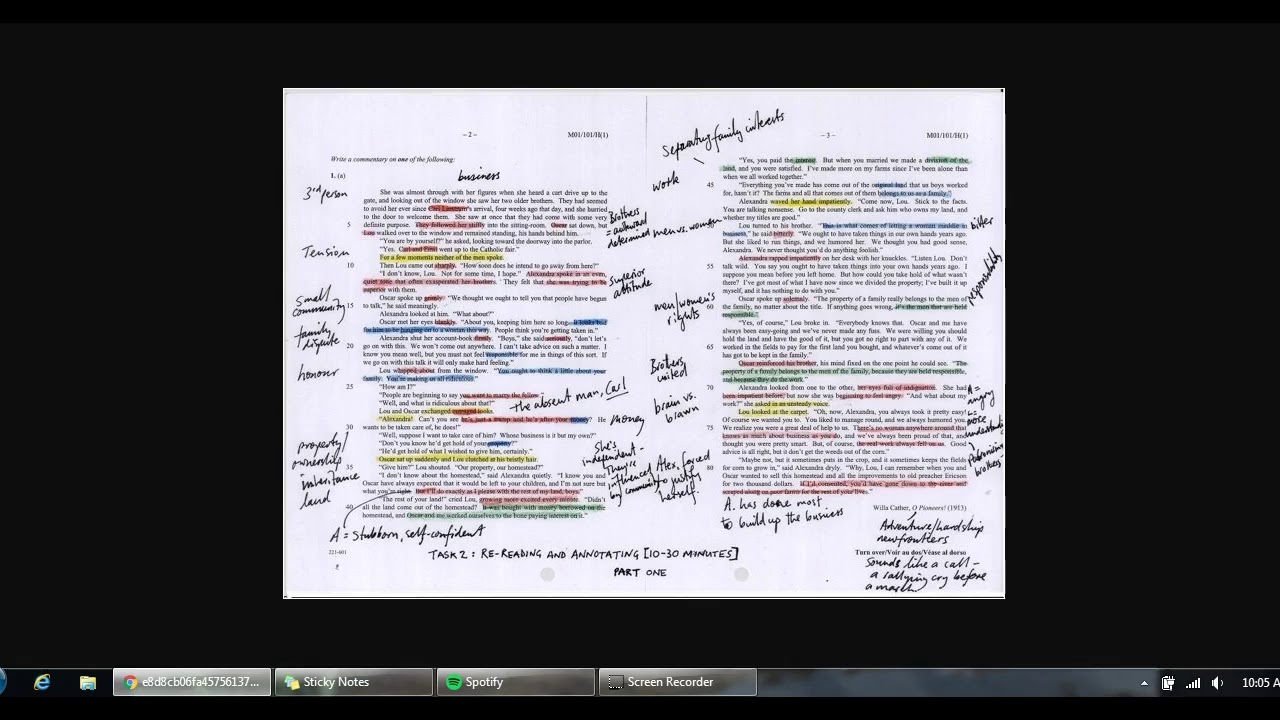 – 2 –
M01/101/H(1)
Write a commentary on one of the following:
1. (a)
business
3rd person
She was almost through with her figures when she heard a cart drive up to the
gate, and looking out of the window she saw her two older brothers. They had seemed
to avoid her ever since Carl Linstrum's arrival, four weeks ago that day, and she hurried
to the door to welcome them. She saw at once that they had come with some very
5 definite purpose. They followed her stiffly into the sitting-room. Oscar sat down, but
Lou walked over to the window and remained standing, his hands behind him.
"You are by yourself?" he asked, looking toward the doorway into the parlor.
"Yes. Carl and Emil went up to the Catholic fair."
For a few moments neither of the men spoke.
10 Then Lou came out sharply. "How soon does he intend to go away from here?"
"I don't know, Lou. Not for some time, I hope." Alexandra spoke in an even,
quiet tone that often exasperated her brothers. They felt that she was trying to be
superior with them.
Oscar spoke up grimly. "We thought we ought to tell you that people have begun
15 to talk," he said meaningly.
Alexandra looked at him. "What about?"
Oscar met her eyes blankly. "About you, keeping him here so long. It looks bad
for him to be hanging on to a woman this way. People think you're getting taken in."
Alexandra shut her account-book firmly. "Boys," she said seriously, "don't let's
20 go on with this. We won't come out anywhere. I can't take advice on such a matter. I
know you mean well, but you must not feel responsible for me in things of this sort. If
we go on with this talk it will only make hard feeling."
Lou whipped about from the window. "You ought to think a little about your
family. You're making us all ridiculous."
25 "How am I?"
"People are beginning to say you want to marry the fellow."
"Well, and what is ridiculous about that?"
Lou and Oscar exchanged outraged looks.
"Alexandra! Can't you see he's just a tramp and he's after your money? He
30 wants to be taken care of, he does!"
"Well, suppose I want to take care of him? Whose business is it but my own?"
"Don't you know he'd get hold of your property?"
"He'd get hold of what I wished to give him, certainly."
Oscar sat up suddenly and Lou clutched at his bristly hair.
35 "Give him?" Lou shouted. "Our property, our homestead?"
"I don't know about the homestead," said Alexandra quietly. "I know you and
Oscar have always expected that it would be left to your children, and I'm not sure but
what you're right. But I'll do exactly as I please with the rest of my land, boys."
"The rest of your land!" cried Lou, growing more excited every minute. "Didn't
40 all the land come out of the homestead? It was bought with money borrowed on the
homestead, and Oscar and me worked ourselves to the bone paying interest on it."
Tension
small
community
family
dispute
honour
property/
ownership
inheritance
land
Brothers
= awkward
determined
men vs. woman
Superior
attitude
men/women's
rights
Brothers
united
the absent man, Carl
money
brain vs.
brawn
She's
independent -
They're
influenced by community
Alex. forced
to justify
herself.
A = Stubborn, self-confident
221-601
TASK 2: RE-READING AND ANNOTATING [10-30 MINUTES]
PART ONE
– 3 –
M01/101/H(1)
Separating family interests
work
"Yes, you paid the interest. But when you married we made a division of the
land, and you were satisfied. I've made more on my farms since I've been alone than
when we all worked together."
45 "Everything you've made has come out of the original land that us boys worked
for, hasn't it? The farms and all that comes out of them belongs to us as a family."
Alexandra waved her hand impatiently. "Come now, Lou. Stick to the facts.
You are talking nonsense. Go to the county clerk and ask him who owns my land, and
whether my titles are good."
50 Lou turned to his brother. "This is what comes of letting a woman meddle in
business," he said bitterly. "We ought to have taken things in our own hands years ago.
But she liked to run things, and we humored her. We thought you had good sense,
Alexandra. We never thought you'd do anything foolish."
Alexandra rapped impatiently on her desk with her knuckles. "Listen, Lou. Don't
55 talk wild. You say you ought to have taken things into your own hands years ago. I
suppose you mean before you left home. But how could you take hold of what wasn't
there? I've got most of what I have now since we divided the property; I've built it up
myself, and it has nothing to do with you."
Oscar spoke up solemnly. "The property of a family really belongs to the men of
60 the family, no matter about the title. If anything goes wrong, it's the men that are held
responsible."
"Yes, of course," Lou broke in. "Everybody knows that. Oscar and me have
always been easy-going and we've never made any fuss. We were willing you should
hold the land and have the good of it, but you got no right to part with any of it. We
65 worked in the fields to pay for the first land you bought, and whatever's come out of it
has got to be kept in the family."
Oscar reinforced his brother, his mind fixed on the one point he could see. "The
property of a family belongs to the men of the family, because they are held responsible,
and because they do the work."
70 Alexandra looked from one to the other, her eyes full of indignation. She had
been impatient before, but now she was beginning to feel angry. "And what about my
work?" she asked in an unsteady voice.
Lou looked at the carpet. "Oh, now, Alexandra, you always took it pretty easy!
Of course we wanted you to. You liked to manage round, and we always humored you.
75 We realize you were a great deal of help to us. There's no woman anywhere around that
knows as much about business as you do, and we've always been proud of that, and
thought you were pretty smart. But, of course, the real work always fell on us. Good
advice is all right, but it don't get the weeds out of the corn."
"Maybe not, but it sometimes puts in the crop, and it sometimes keeps the fields
80 for corn to grow in," said Alexandra dryly. "Why, Lou, I can remember when you and
Oscar wanted to sell this homestead and all the improvements to old preacher Ericson
for two thousand dollars. If I'd consented, you'd have gone down to the river and
scraped along on poor farms for the rest of your lives."
bitter
responsibility
A =
angry
more
understands
patronising
brothers
A. has done most
to build up the business
Willa Cather, O Pioneers! (1913)
Adventure/hardship
new frontiers
Turn over/Voir au dos/Véase al dorso
Sounds like a call -
a rallying cry before
a march.
e8d8cb06fa45756137...
Sticky Notes
Spotify
Screen Recorder
10:05 A